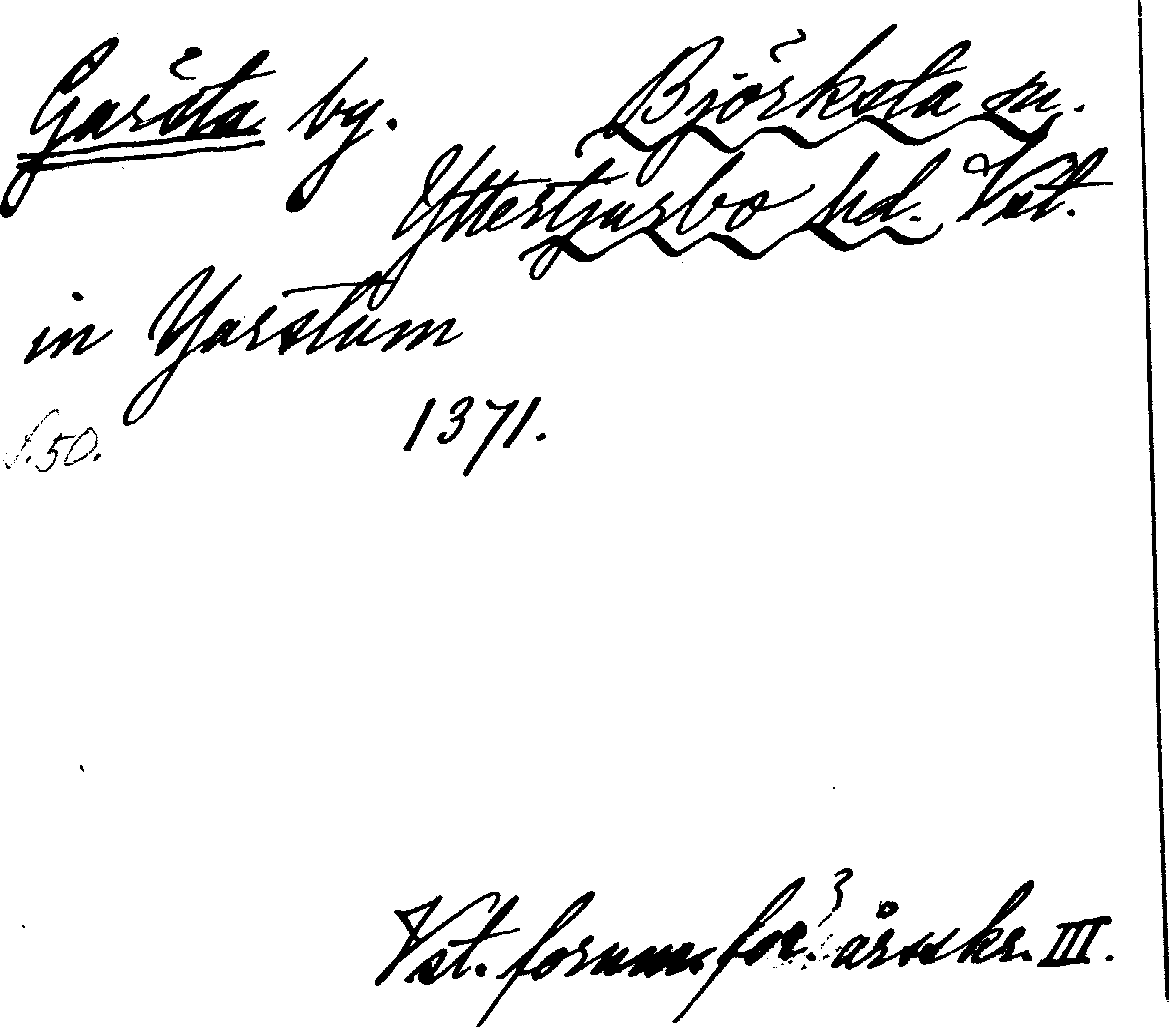 Garsta by. Björksta sn.
Yttertjurbo hd. Vst.
in Yarstum
S. 50. 1371.
Vst. fornm. för:s årsskr. III.